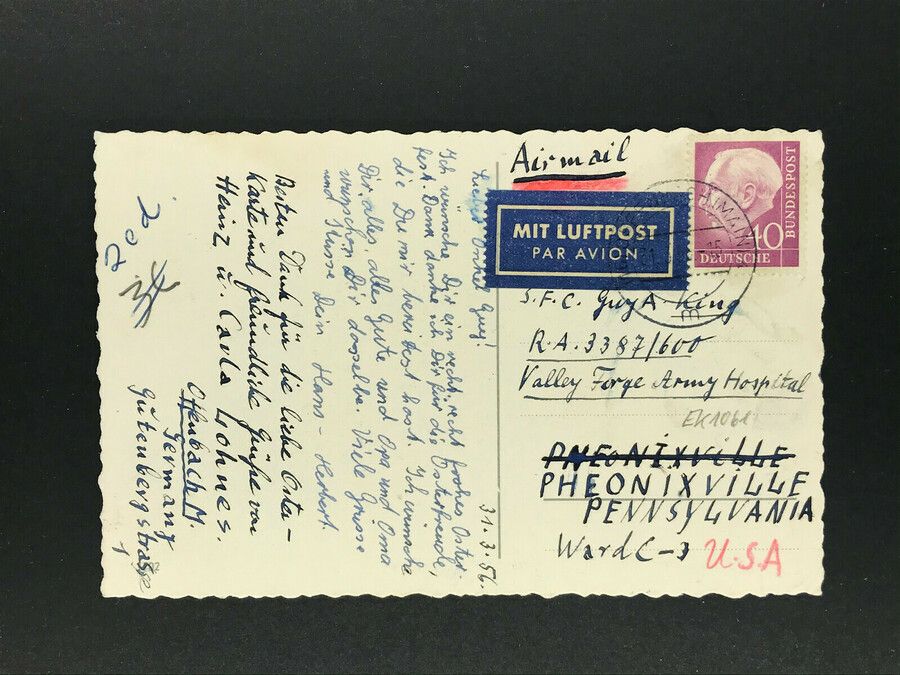 31.3.56.
Lieber Onkel Guy!
Ich wünsche Dir ein recht, recht frohes Oster-
fest. Dann danke ich Dir für die Osterfreude,
die Du mir bereitest hast. Ich wünsche
Dir alles, alles Gute und Opa und Oma
wünschen Dir dasselbe. Viele Grüsse
und Küsse Dein Hans-Herbert.
Besten Dank für die liebe Oster-
karte und freundliche Grüße von
Heinz u. Carla Lohnes.
Offenbach M.
Germany
Gutenbergstraße
1
Airmail
MIT LUFTPOST
PAR AVION
DEUTSCHE
BUNDESPOST
40
S.F.C. Guy A King
R.A. 3387/600
Valley Forge Army Hospital
EK1061
PHEONIXVILLE
PHEONIXVILLE
PENNSYLVANIA
Ward C-3
U.S.A